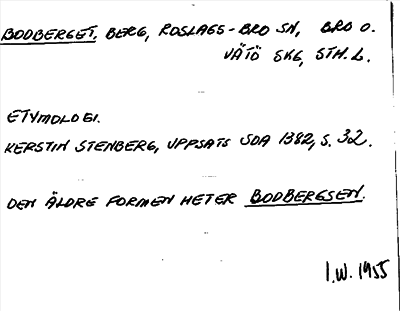 BODBERGET, BERG, ROSLAGS-BRO SN, BRO O.
VÄTÖ SKG, STH. L.
ETYMOLOGI.
KERSTIN STENBERG, UPPSATS SOA 1382, S. 32.
DEN ÄLDRE FORMEN HETER BODBERGSEN.
I.W. 1955